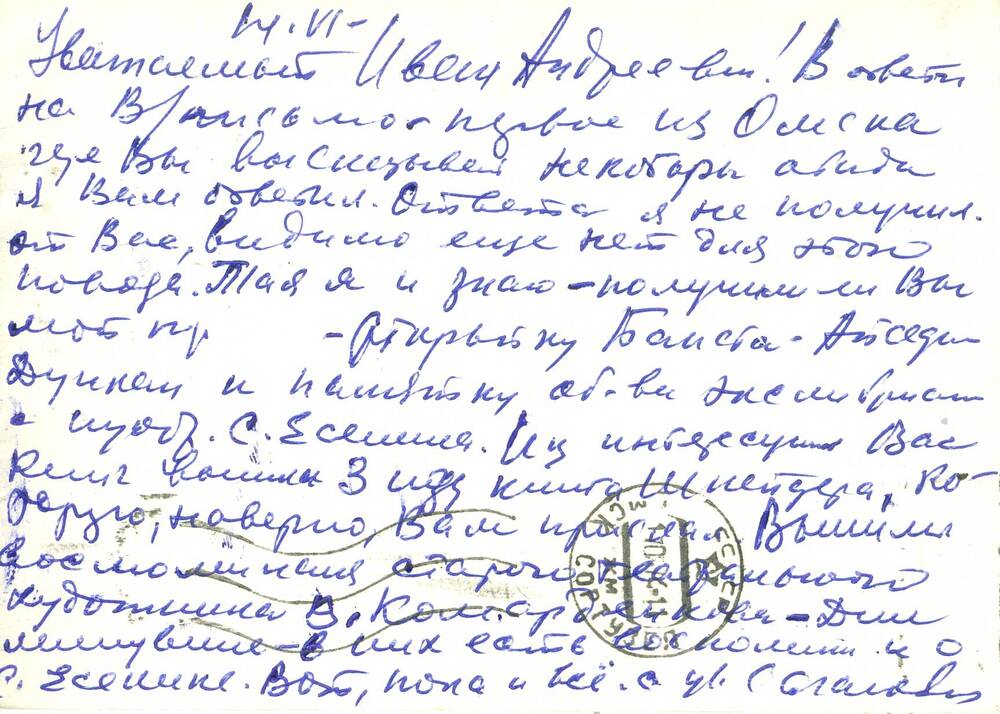 14.VI-
Уважаемый Иван Андреевич! В ответ
на В/письмо-первое из Омска
где Вы высказывает некоторы обида
я Вам ответил. Ответа я не получил.
от Вас, видимо еще нет для этого
повода. Так я и знаю-получили ли Вы
мой пр -открытку Айседры
Дункан и памятку об-ва экслибриси
с изобр. С. Есенина. Из интересующ Вас
книг вышла 3 изд книга Шнейдера, ко-
торую, наверно, Вам прислал. Вышли
воспоминания старого театрального
художника В. Комарденкова-Дни
минувшие-в них есть воспомин и о
С. Есенине. Вот, пока и всё. с ув.
СССР
МСК